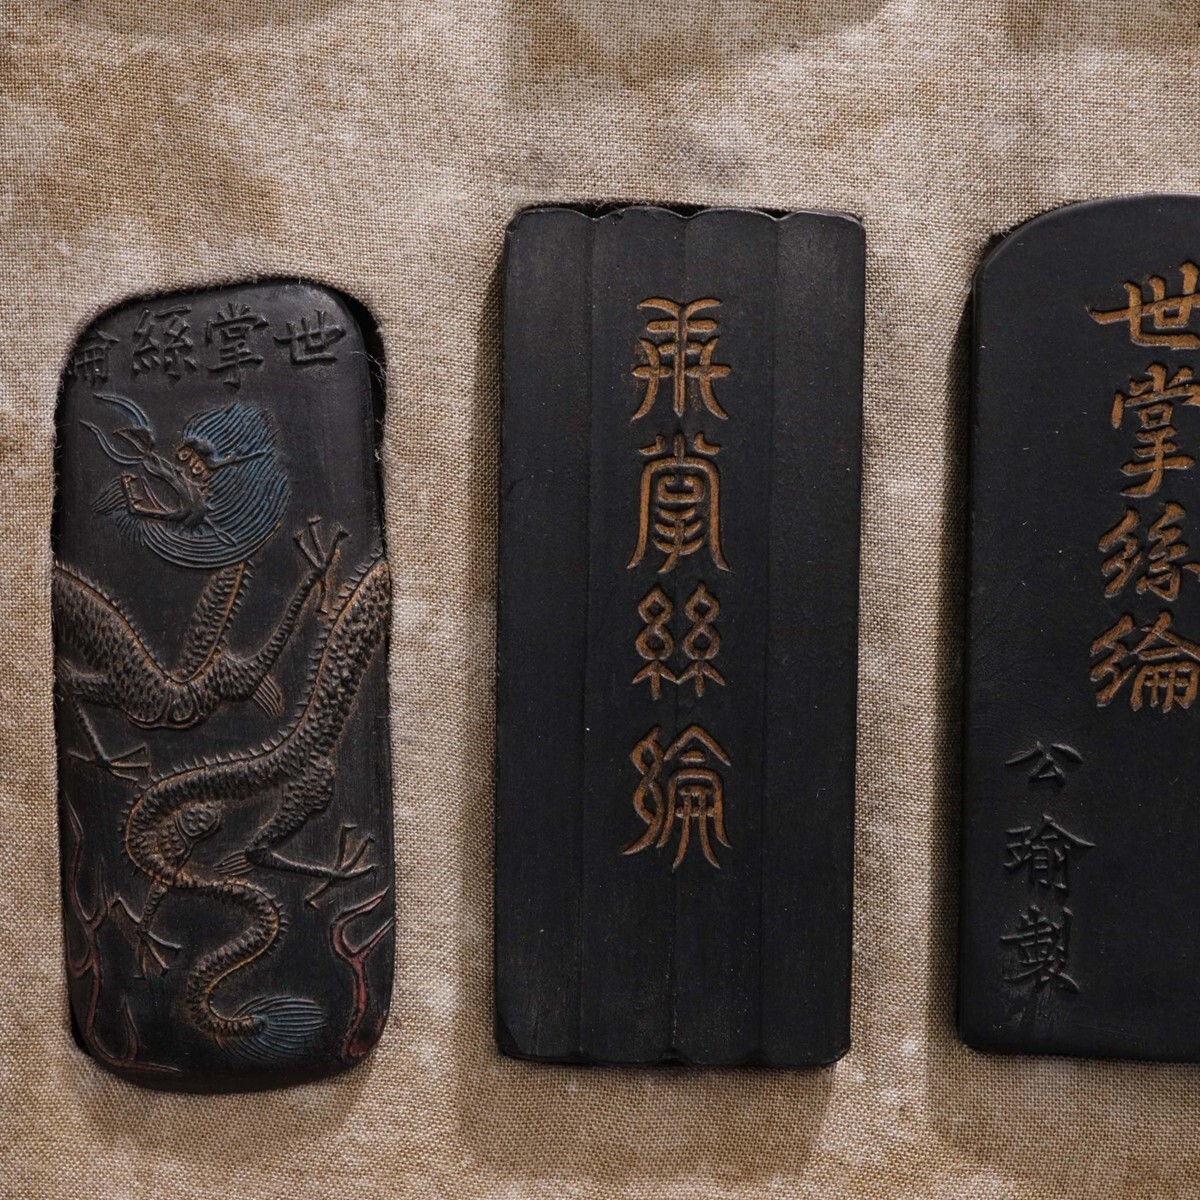 世掌絲綸
世掌絲綸
世掌絲綸
公瑜製